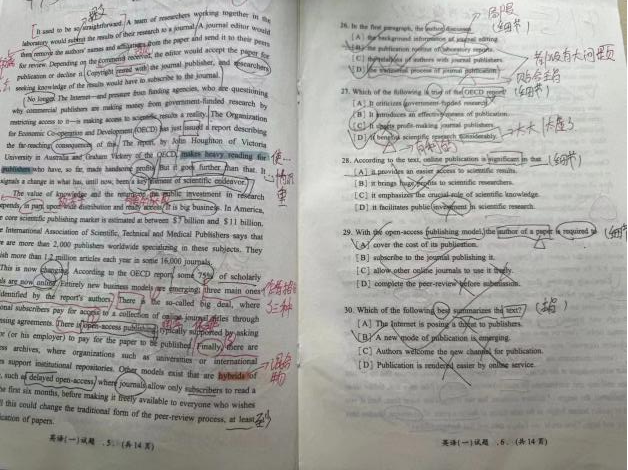 [It used to be so straightforward. A team of researchers working together in the
laboratory would submit the results of their research to a journal. A journal editor would
then remove the authors' names and affiliations from the paper and send it to their peers
for review. Depending on the comments received, the editor would accept the paper for
publication or decline it. Copyright rested with the journal publisher, and researchers
seeking knowledge of the results would have to subscribe to the journal.
No longer. The Internet—and pressure from funding agencies, who are questioning
why commercial publishers are making money from government-funded research by
restricting access to it—is making access to scientific results a reality. The Organization
for Economic Co-operation and Development (OECD) has just issued a report describing
the far-reaching consequences of this. The report, by John Houghton of Victoria
University in Australia and Graham Vickery of the OECD, makes heavy reading for
publishers who have, so far, made handsome profits. But it goes further than that. It
signals a change in what has, until now, been a key element of scientific endeavor.
The value of knowledge and the return on the public investment in research
depends, in part, upon wide distribution and ready access. It is big business. In America,
core scientific publishing market is estimated at between $7 billion and $11 billion.
International Association of Scientific, Technical and Medical Publishers says that
are more than 2,000 publishers worldwide specializing in these subjects. They
more than 1.2 million articles each year in some 16,000 journals.
This is now changing. According to the OECD report, some 75% of scholarly
are now online. Entirely new business models are emerging; three main ones
identified by the report's authors. There is the so-called big deal, where
subscribers pay for access to a collection of online journal titles through
agreements. There is open-access publishing, typically supported by asking
(or his employer) to pay for the paper to be published. Finally, there are
archives, where organizations such as universities or international
support institutional repositories. Other models exist that are hybrids of
such as delayed open-access, where journals allow only subscribers to read a
the first six months, before making it freely available to everyone who wishes
this could change the traditional form of the peer-review process, at least
publication of papers.
英语(一)试题 . 5 . (共14页)
局限
26. In the first paragraph, the author discusses (细节)
[A] the background information of journal editing.
[B] the publication routine of laboratory reports.
[C] the relations of authors with journal publishers.
[D] the traditional process of journal publication.
27. Which of the following is true of the OECD report? (细节)
[A] It criticizes government-funded research.
[B] It introduces an effective means of publication.
[C] It upsets profit-making journal publishers.
[D] It benefits scientific research considerably.
28. According to the text, online publication is significant in that (细节)
[A] it provides an easier access to scientific results.
[B] it brings huge profits to scientific researchers.
[C] it emphasizes the crucial role of scientific knowledge.
[D] it facilitates public investment in scientific research.
29. With the open-access publishing model, the author of a paper is required to
[A] cover the cost of its publication.
[B] subscribe to the journal publishing it.
[C] allow other online journals to use it freely.
[D] complete the peer-review before submission.
30. Which of the following best summarizes the text?
[A] The Internet is posing a threat to publishers.
[B] A new mode of publication is emerging.
[C] Authors welcome the new channel for publication.
[D] Publication is rendered easier by online service.
英语(一)试题 . 6 . (共14页)